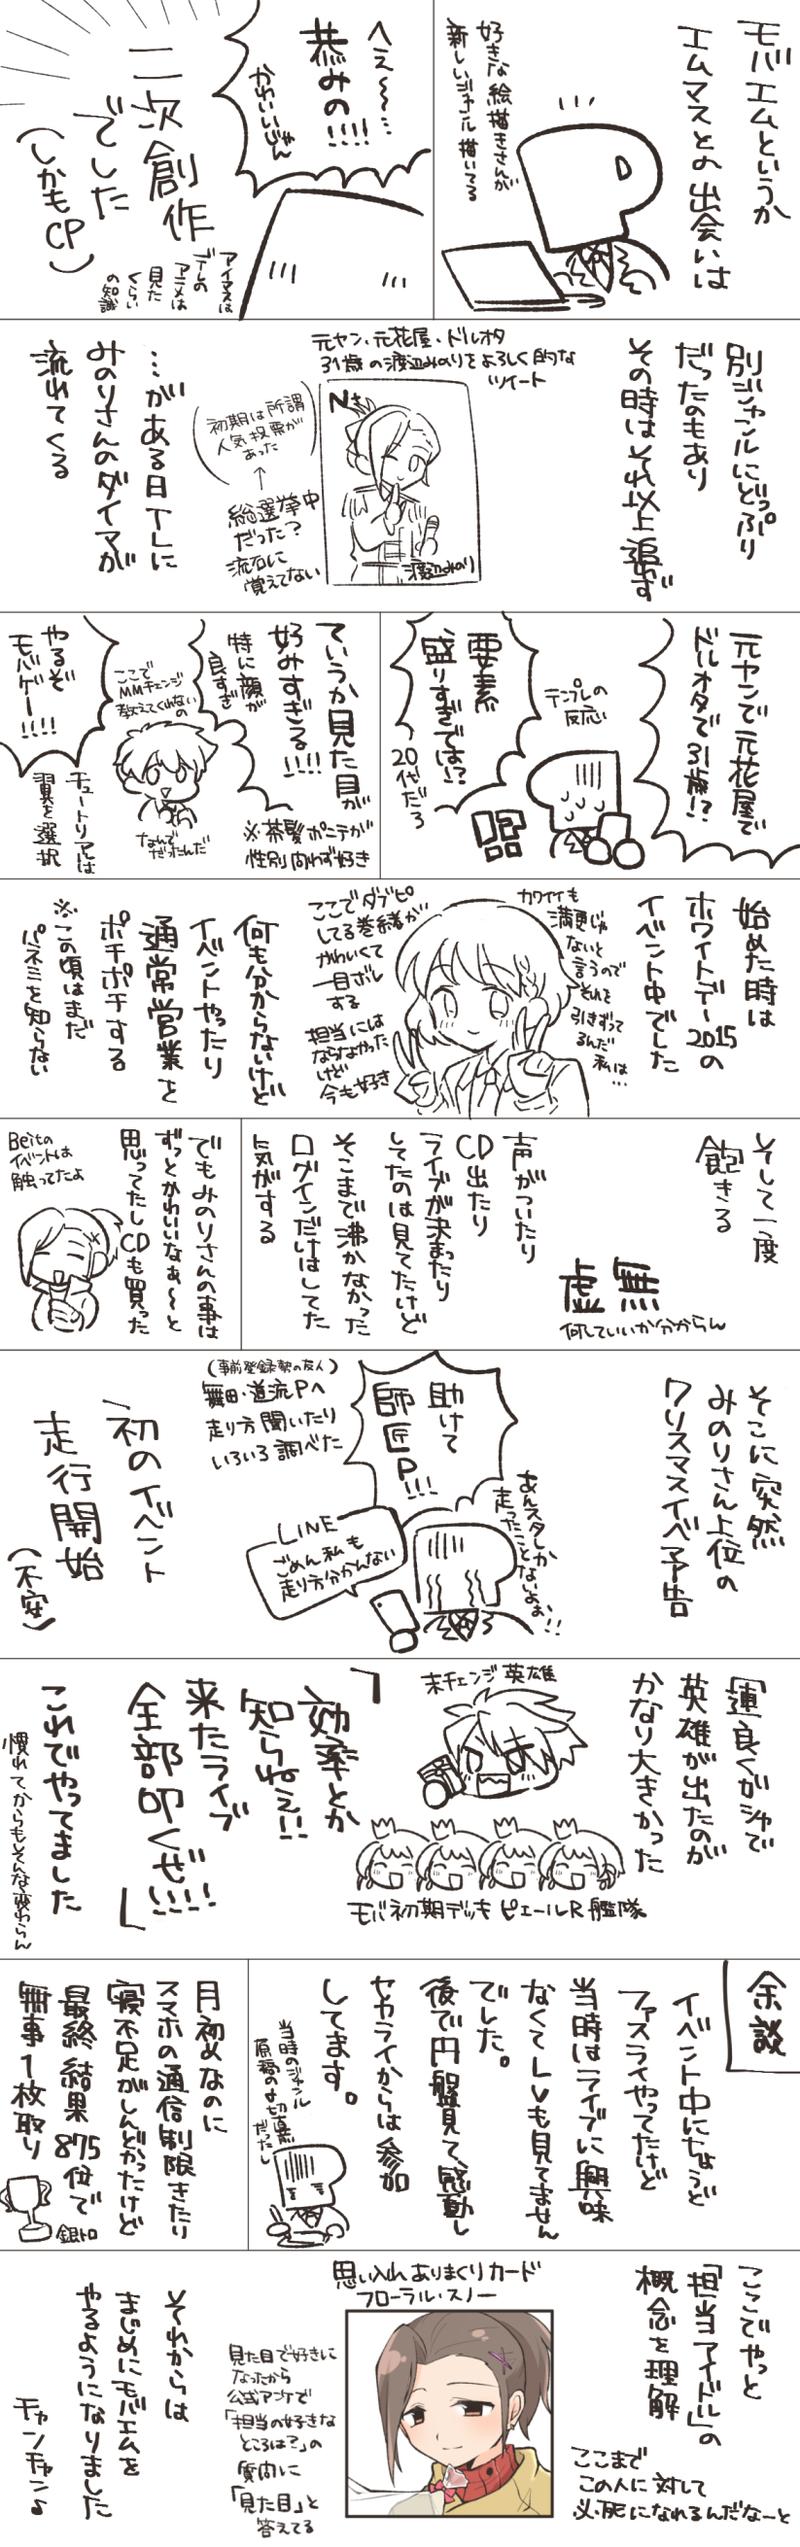 モバエムというか
エムマスとの出会いは
好きな絵描きさんが
新しいジャンル描いてる
へぇ〜〜…
恭みの!!!!
かわいいじゃん
二次創作
でした
(しかもCP)
アイマスは
デレの
アニメは
見た
くらい
の知識
別ジャンルにどっぷり
だったのもあり
その時はそれ以上追わず
元ヤン・元花屋・ドルオタ
31歳の渡辺みのりをよろしく的な
ツイート
N+
渡辺みのり
(初期は所謂
人気投票が
あった)
↑
総選挙中
だった?
流石に
覚えてない
…がある日TLに
みのりさんのダイマが
流れてくる
元ヤンで元花屋で
ドルオタで31歳!?
テンプレの
反応
要素
盛りすぎでは!?
20代だろ
ていうか見た目が
好みすぎる!!!!
特に顔が
良すぎ
※茶髪ポニテが
性別問わず好き
ここで
MMチェンジ
教えてくれないの
なんで
だったんだ
やるぞ
モバゲー!!!!
チュートリアルは
翼を選択
始めた時は
ホワイトデー2015の
イベント中でした
カワイイも
満更じゃ
ないと
言うので
それを
引きずって
るんだ
私は…
ここでダブピ
してる巻緒が
かわいくて
一目ボレ
する
担当には
ならなかった
けど
今も好き
何も分からないけど
イベントやったり
通常営業を
ポチポチする
※この頃はまだ
パネミを知らない
そして一度
飽きる
虚無
何していいか分からん
声がついたり
CD出たり
ライブが決まったり
してたのは見てたけど
そこまで沸かなかった
ログインだけはしてた
気がする
でもみのりさんの事は
ずっとかわいいなぁ〜と
思ってたしCDも買った
Beitの
イベントは
触ってたよ
そこに突然
みのりさん上位の
クリスマスイベ予告
助けて
師匠P!!!
あんスタしか
走ったこと
ないよぉ!!
(事前登録勢の友人)
舞田・道流Pへ
走り方聞いたり
いろいろ調べた
LINE
ごめん私も
走り方分かんない
初のイベント
走行開始
(不安)
運良くガシャで
英雄が出たのが
かなり大きかった
未チェンジ英雄
モバ初期デッキ ピエールR艦隊
「効率とか
知らねえ!!
来たライブ
全部叩くぜ!!!!」
これでやってました
慣れてからもそんな変わらん
余談
イベント中にちょうど
ファスライやってたけど
当時はライブに興味
なくてLVも見てません
でした。
後で円盤見て、感動し
セカライからは参加
してます。
当時のジャンル
原稿の〆切直前
だったし
月初めなのに
スマホの通信制限きたり
寝不足がしんどかったけど
最終結果875位で
無事1枚取り
銀トロ
ここでやっと
「担当アイドル」の
概念を理解
ここまで
この人に対して
必死になれるんだな〜と
思い入れありまくりカード
フローラル・スノー
見た目で好きに
なったから
公式アンケで
「担当の好きな
ところは?」の
質問に
「見た目」と
答えてる
それからは
まじめにモバエムを
やるようになりました
チャンチャン♪